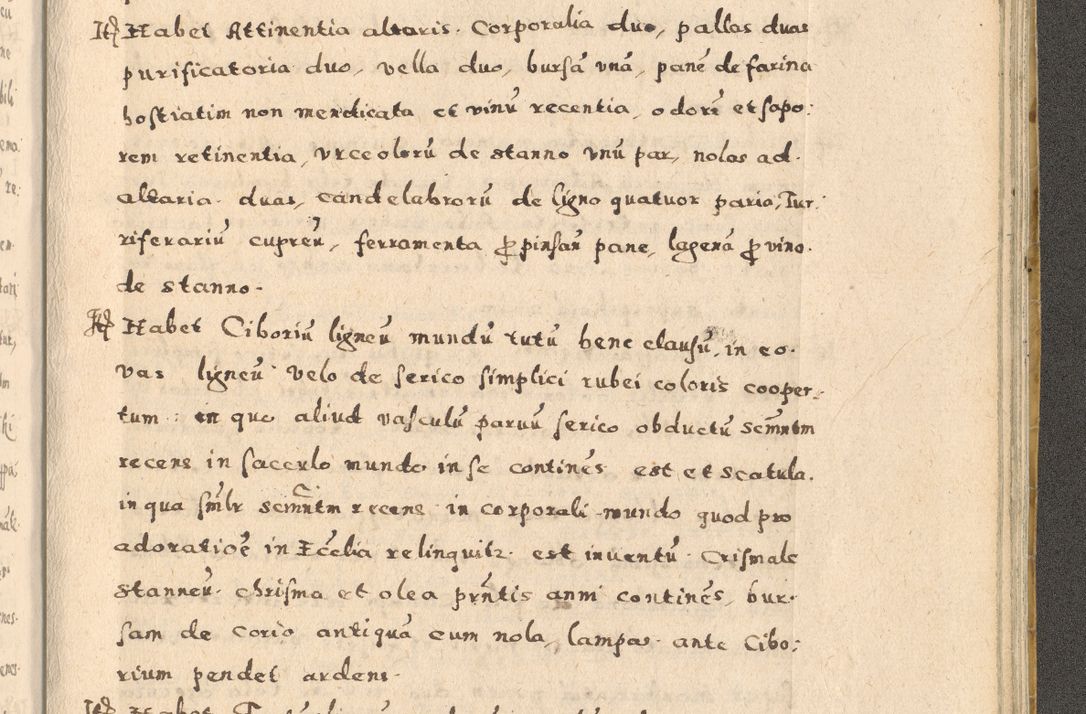 Itẽ Habet Attinentia altaris. Corporalia duo, pallas duas
purificatoria duo, vella duo, bursã vnã, panẽ de farina
hostiatim non mendicata et vinũ recentia, odorẽ et sapo:
rem retinentia, vrceolorũ de stanno vnũ par, nolas ad.
altaria. duas, candelabrorũ de ligno quatuor paria, Tur:
riferariũ cupreũ, ferramenta ꝓ pinsan pane, lagenã ꝓ vino.
de stanno.
Itẽ Habet Ciboriũ ligneũ mundũ tutũ bene clausũ, in eo.
vas ligneũ velo de serico simplici rubei coloris cooper:
tum: in quo aliud vasculũ paruũ serico obductũ Scm̃ntm
recens in sacculo mundo in se continẽs est et scatula.
in qua sm̃lr scm̃ntm recens in corporali mundo quod pro
adoratioẽ in Ecc̃lia relinquitr. est inuentũ. Crismale
stanneũ. chrisma et olea prñtis anni continẽs, bur.
sam de corio antiquã cum nola, lampas. ante Cibo:
rium pendet ardens.
Itẽ Habet